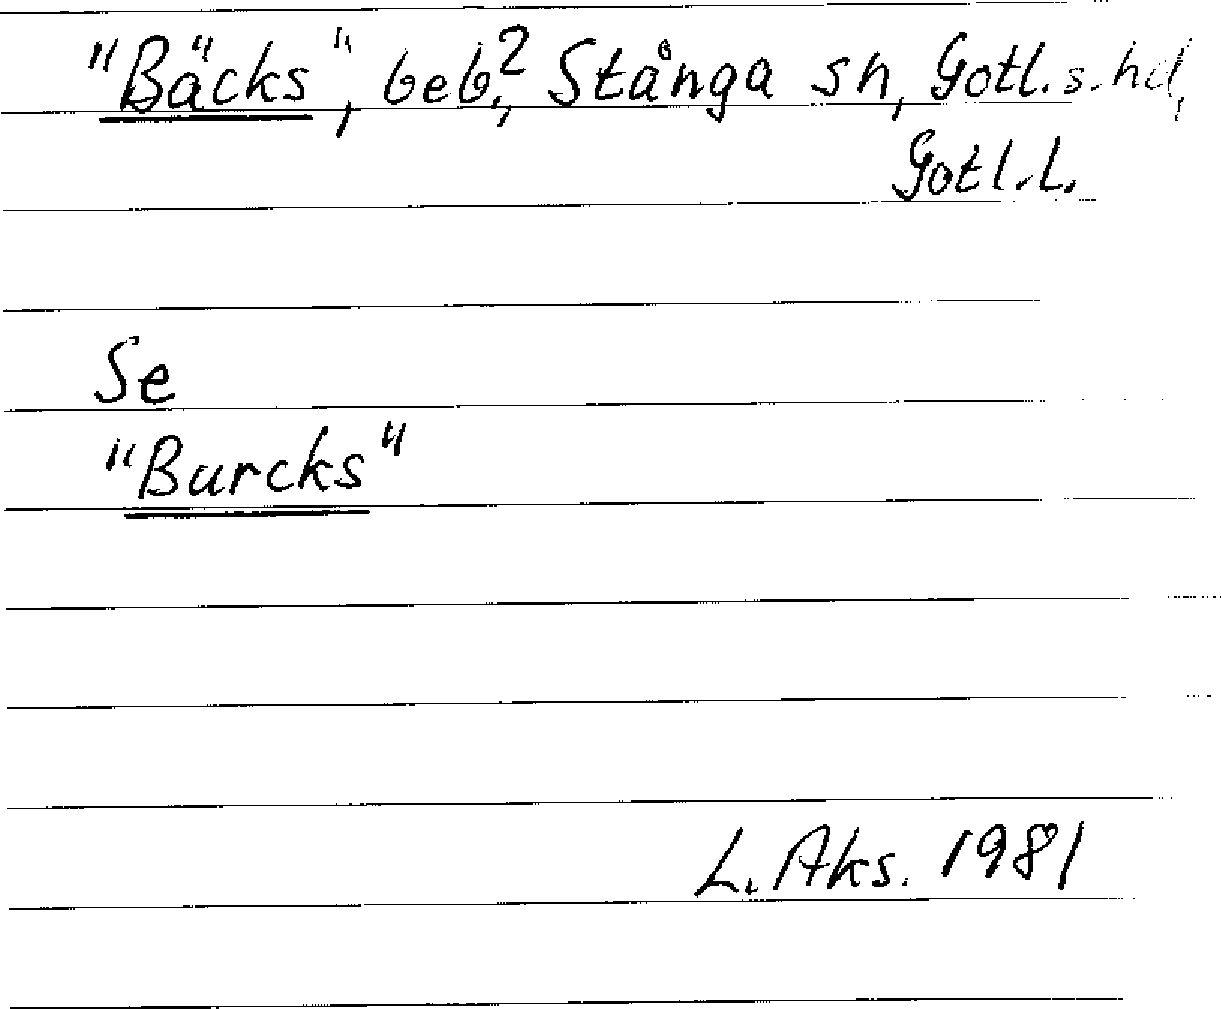 "Bäcks", beb.?, Stånga sn, Gotl. s. hd,
Gotl. l.
Se
"Burcks"
L. Aks. 1981